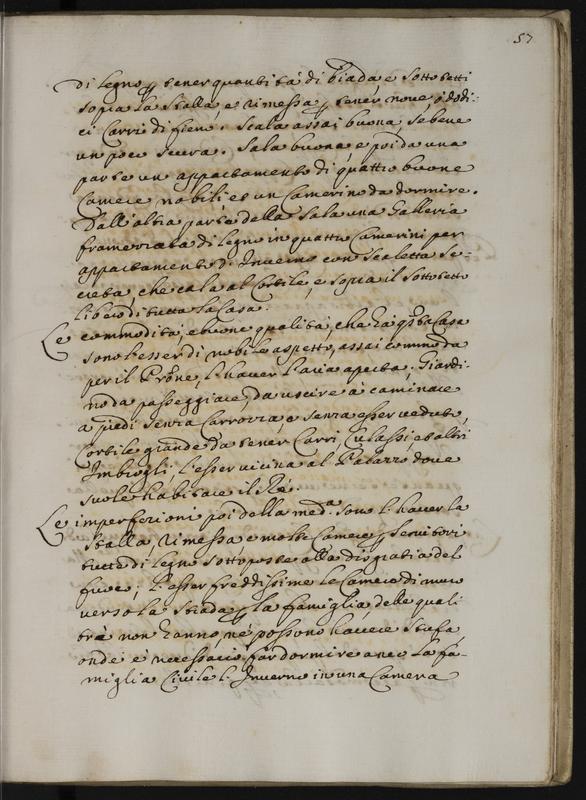 57
di legno p tener quantità di biada, e sottotetti
sopra la stalla, e rimessa p tener nove, ò dodi-
ci Carri di fieno. Scala assai buona, se bene
un poco scura. Sala buona, e poi da una
parte un appartamento di quattro buone
Camere nobili et un Camerino da dormire.
Dall'altra parte della Sala una Galleria
framezzata di legno in quattro Camerini per
appartamento d'Inverno con scaletta se-
creta, che cala al Cortile, e sopra il sottotetto
libero di tutta la Casa.
Le commodità, e buone qualità, che hà qsta Casa
sono l'esser di nobile aspetto, assai commoda
per il Prōne, l'haver l'aria aperta, Giardi-
no da passeggiare, da uscire à caminare
a piedi senza Carrozza e senza esser veduto,
Cortile grande da tener Carri, Culassi, et altri
Imbrogli, l'esser vicina al Palazzo, dove
suole habitare il Rè.
Le imperfezioni poi della meda. sono l'haver la
stalla, rimessa, e molte Camere p servitori
tutto di legno sottoposte alla disgratia del
fuoco, l'esser freddissime le Camere di muro
verso la strada p la famiglia, delle quali
trè non hanno, nè possono havere stufa,
onde è necessario far dormire anco la fa-
miglia Civile l'Inverno in una Camera